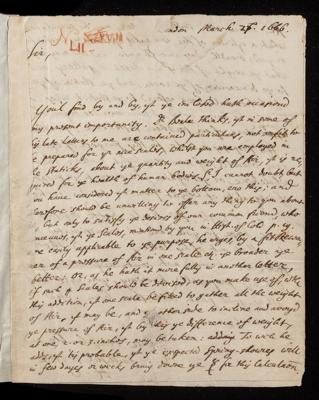 N. XXXVIII
LII.
March 27. 1666.
Sir,
You'l find by and by, yt ye inclosed hath occasiond
my present importunity. Beale thinks, yt in some of
his late letters to me are contained particulars, not unfit to
be prepared for ye nice Scales, whilst you are employed in
ye Staticks, about ye quantity and weight of Air, yt is re-
quired for ye health of human bodies. Sr, I cannot doubt but
you have considered yt matter to ye bottom, ere this; and
therefore should be unwilling to offer any thing to you about
but only to satisfy ye desires of our common friend, who
ye Scales, mention'd by you in Hist. of Cold p.
easily applicable to ye purpose, he
of a pressure of Air in one scale of ye broader
better: or, as he hath it more fully in another letter,
if such Scales should be devised, as you make use of, with
this addition, yt one scale be fitted to gather all the weight
of Air, yt may be, and ye other side to incline and avoyd
ye pressure of Air, yt by this ye difference of weight,
at one 2. or 3. inches, may be, taken: adding To wch he
adds, yt tis probable, yt ye expected Spring-showres will
in few dayes or weeks bring downe ye for this Calculaon.